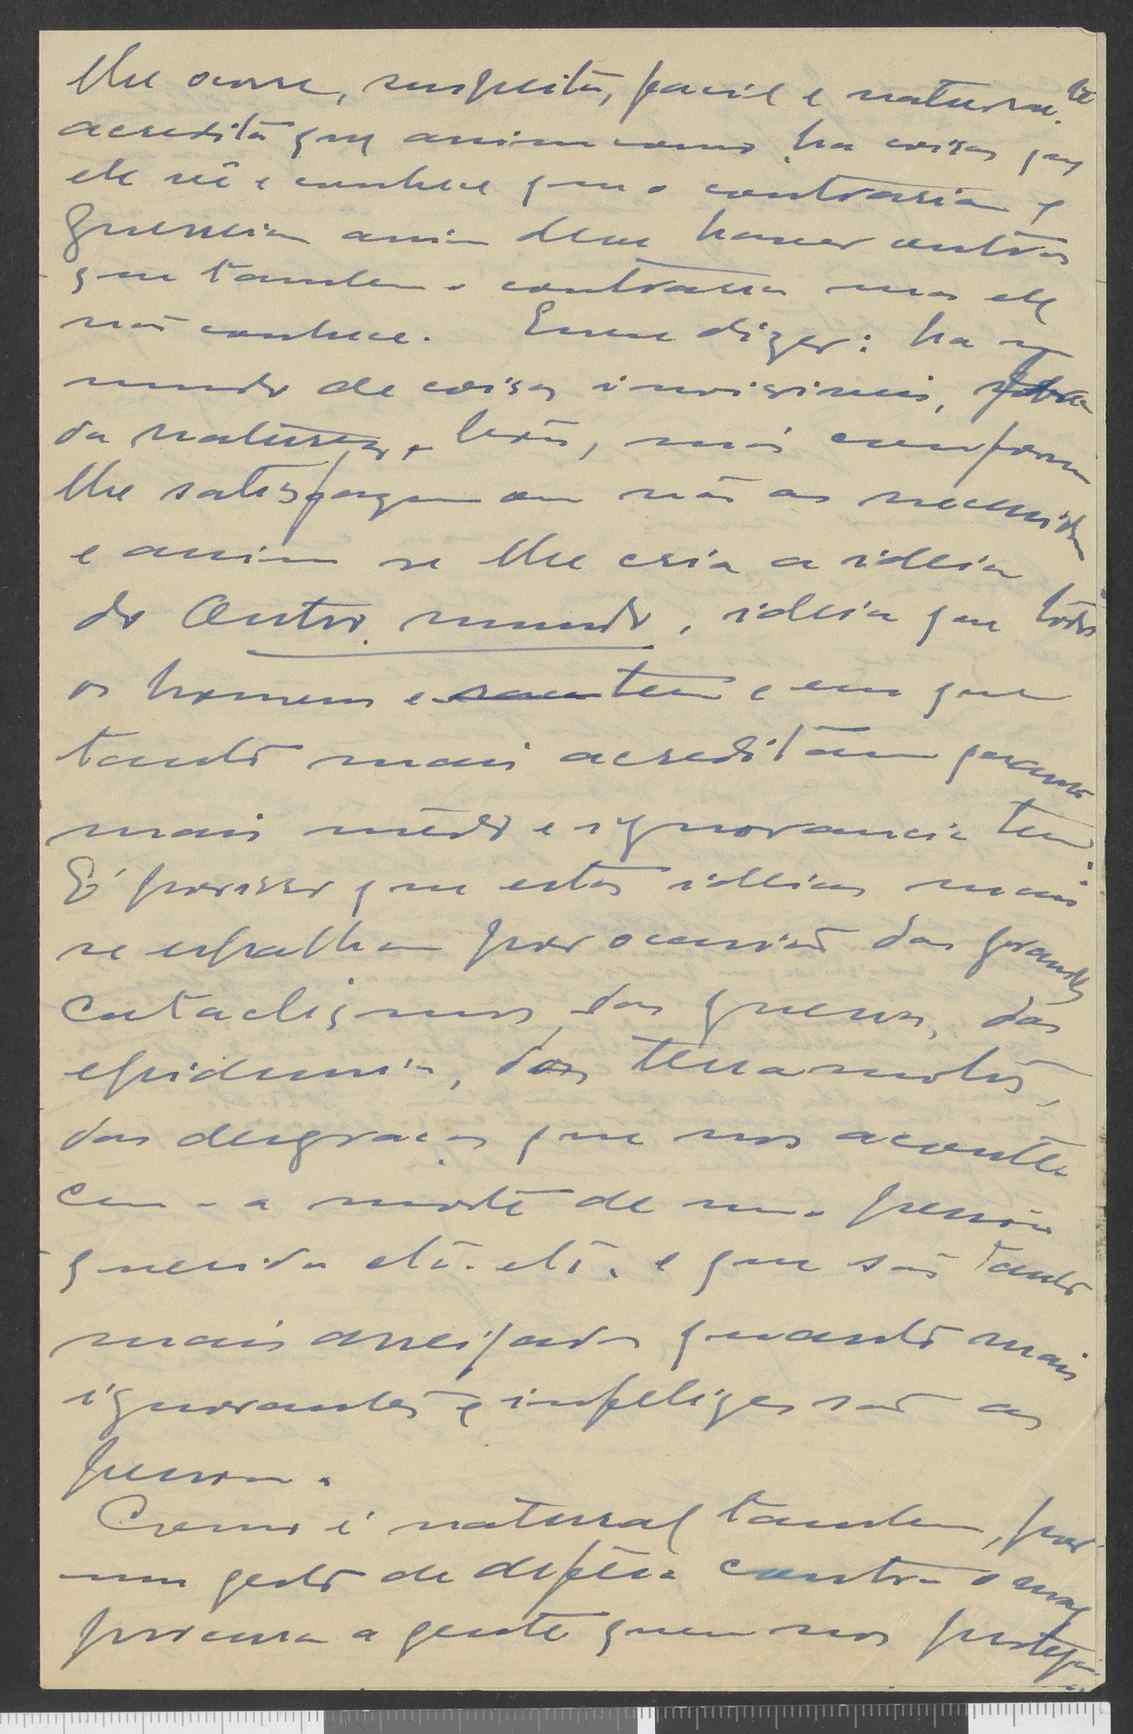 lhe ocorre, suspeita, facil e natural.te
acredita que assim como ha coisas que
ele vê e conhece que o contrariam e
guerreiam assim deve haver outras
que tambem o contrariam mas ele
não conhece. Quere dizer: ha um
mundo de coisas invisiveis,
da natureza, bôas, más conforme
lhe satisfazem ou não as necessida
e assim se lhe cria a ideia
do Outro mundo, ideia que todos
os homens tem e em que
tanto mais acreditam quanto
mais mêdo e ignorancia tem.
É porisso que estas ideias mais
se espalham por ocasião das grandes
cataclismos, das guerras, das
epidemias, dos terramotos,
das desgraças que nos aconte
cem - a morte de uma pessôa
querida etc. etc. e que são tanto
mais arreigadas quanto mais
ignorantes e infelizes são as
pessoas.
Como é natural tambem, por
um gesto de defêsa contra o mal
procura a gente quem nos proteja